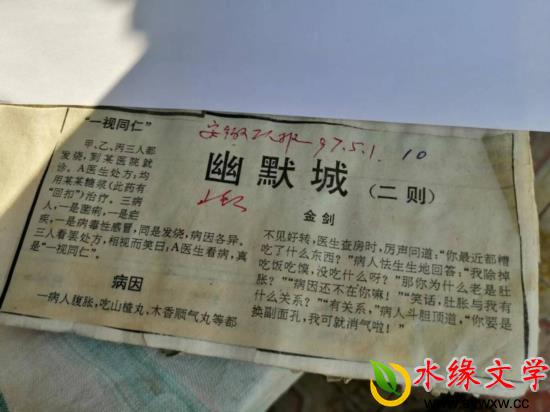 “一视同仁”
甲、乙、丙三人都
发烧，到某医院就
诊。A医生处方，均
用某某糖浆（此药有
“回扣”）治疗。三病
人，一是菌痢，一是疟
疾，一是病毒性感冒，同是发烧，病因各异。
三人看罢处方，相视而笑曰：A医生看病，真
是“一视同仁”。
病因
一病人腹胀，吃山楂丸、木香顺气丸等都
97.5.1. 10
幽默城（二则）
金剑
不见好转，医生查房时，厉声问道：“你最近都
吃了什么东西？”病人怯生生地回答：“我除掉
吃饭吃馍，没吃什么呀？”“那你为什么老是肚
胀？”“病因还不在你嘛！”“笑话，肚胀与我有
什么关系？”“有关系，”病人斗胆顶道，“你要是
换副面孔，我可就消气啦！”
水缘文学